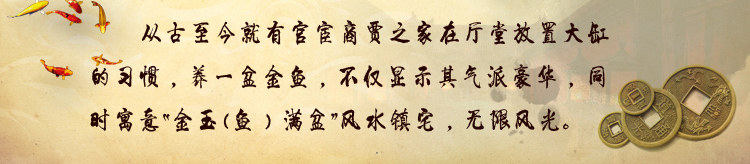 从古至今就有官宦商贾之家在厅堂放置大缸
的习惯，养一盆金鱼，不仅显示其气派豪华，同
时寓意“金玉(鱼）满盆”风水镇宅，无限风光。